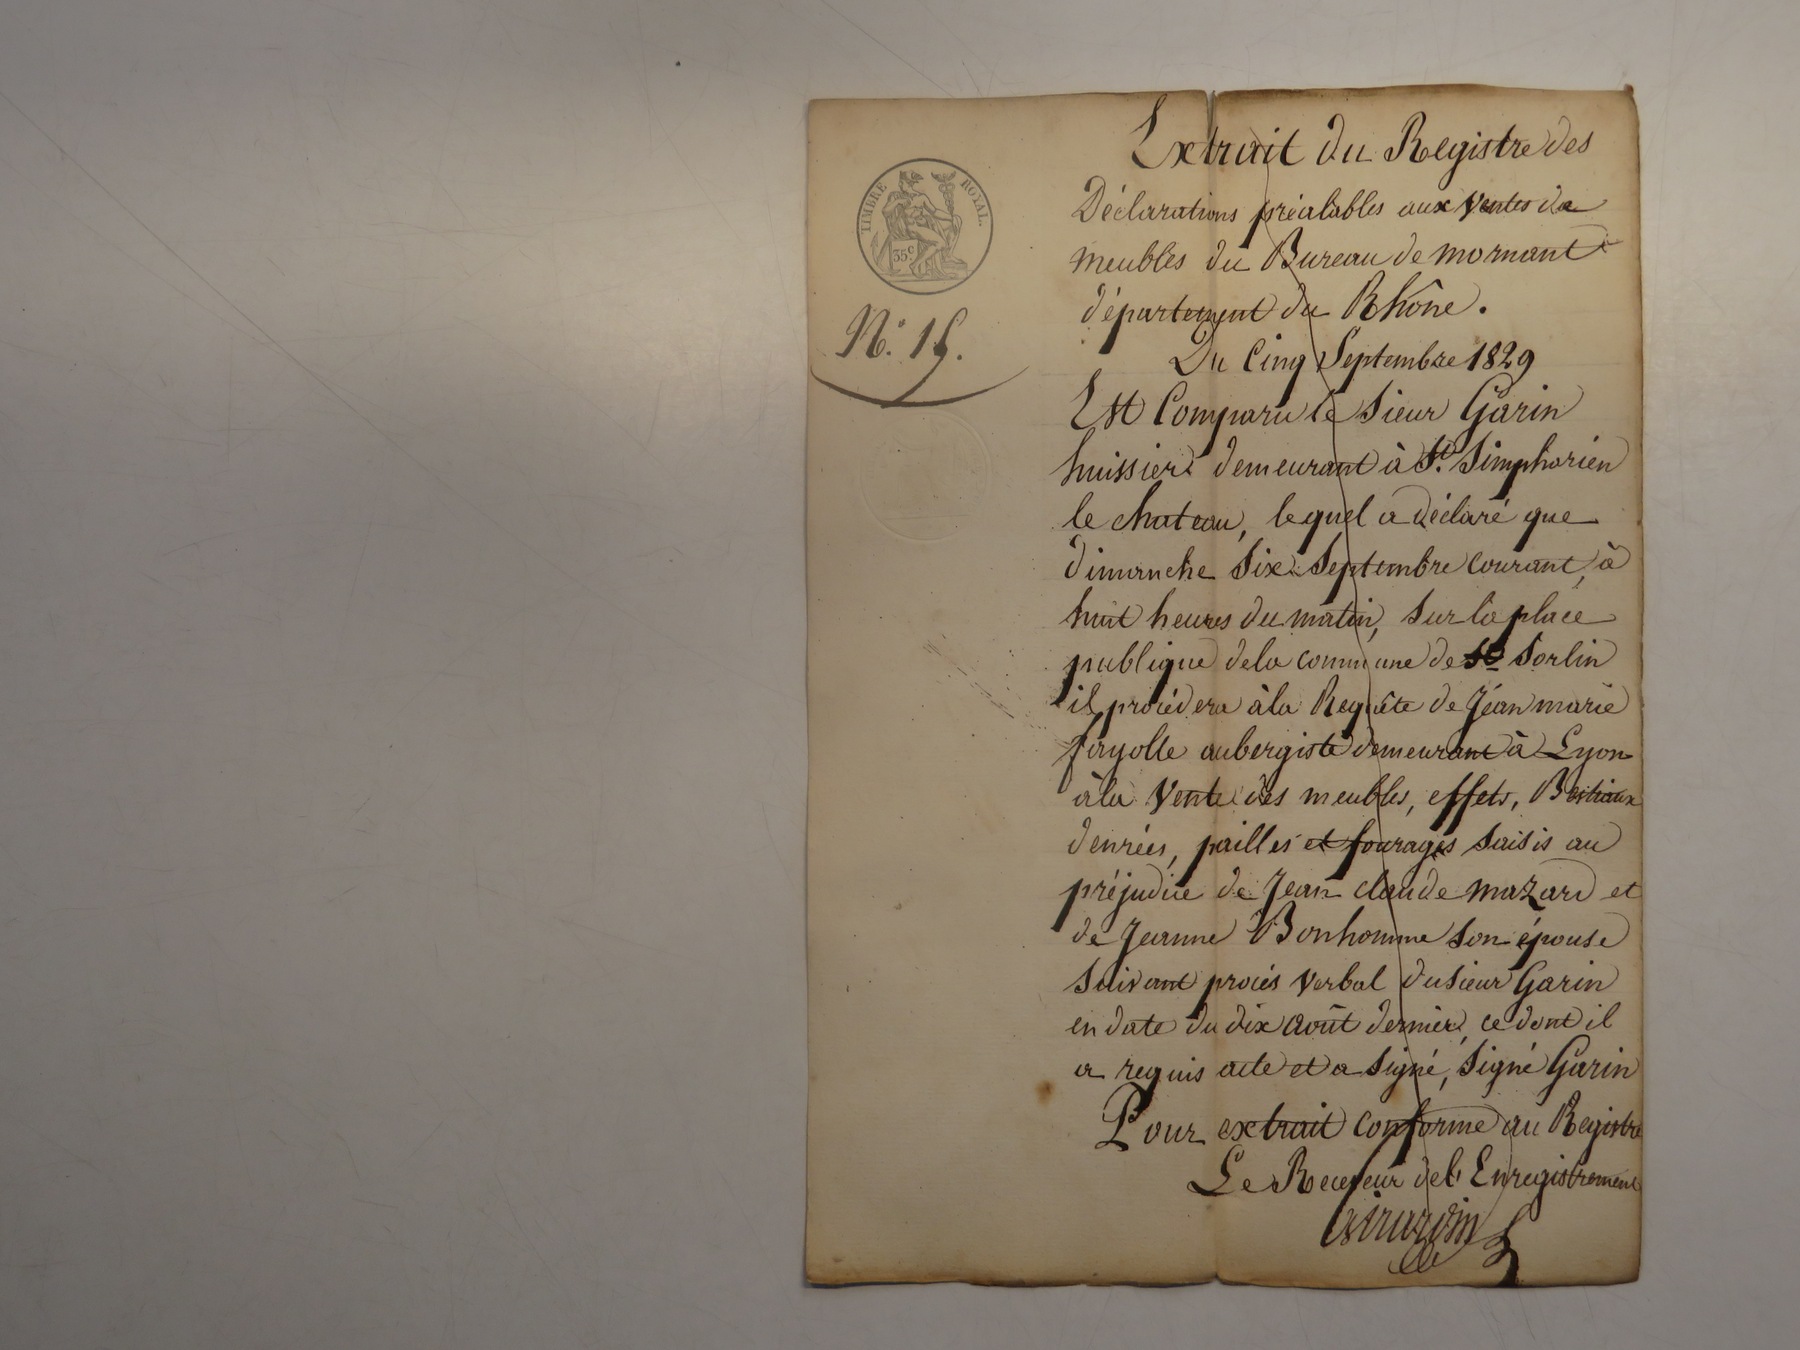 TIMBRE ROYAL.
35c
N.° 15.
Extrait du Registre des
Déclarations préalables aux ventes de
meubles du Bureau de mornant
département du Rhône.
Du Cinq Septembre 1829
Est Comparu le Sieur Garin
huissier demeurant à St. Simphorien
le chateau, lequel a déclaré que
dimanche Six Septembre courant, à
huit heures du matin, sur la place
publique dela commune de St Sorlin
il procédera àla Requête de Jéan marie
fayolle aubergiste demeurant à Lyon
àla Vente des meubles, effets, Bestiaux
denrées, pailles et fourages saisis au
préjudice de Jean claude mazard et
de Jeanne Bonhomme son épouse
Suivant procès verbal dusieur Garin
en date du dix août dernier, ce dont il
a requis acte et a signé, signé Garin
Pour extrait conforme au Registre
Le Receveur del'Enregistrement
Girardin